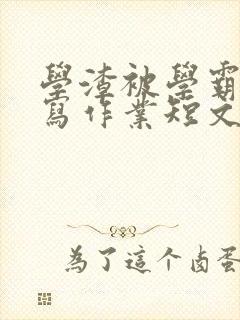 學渣被學霸
寫作業短文
為了這个卤蛋